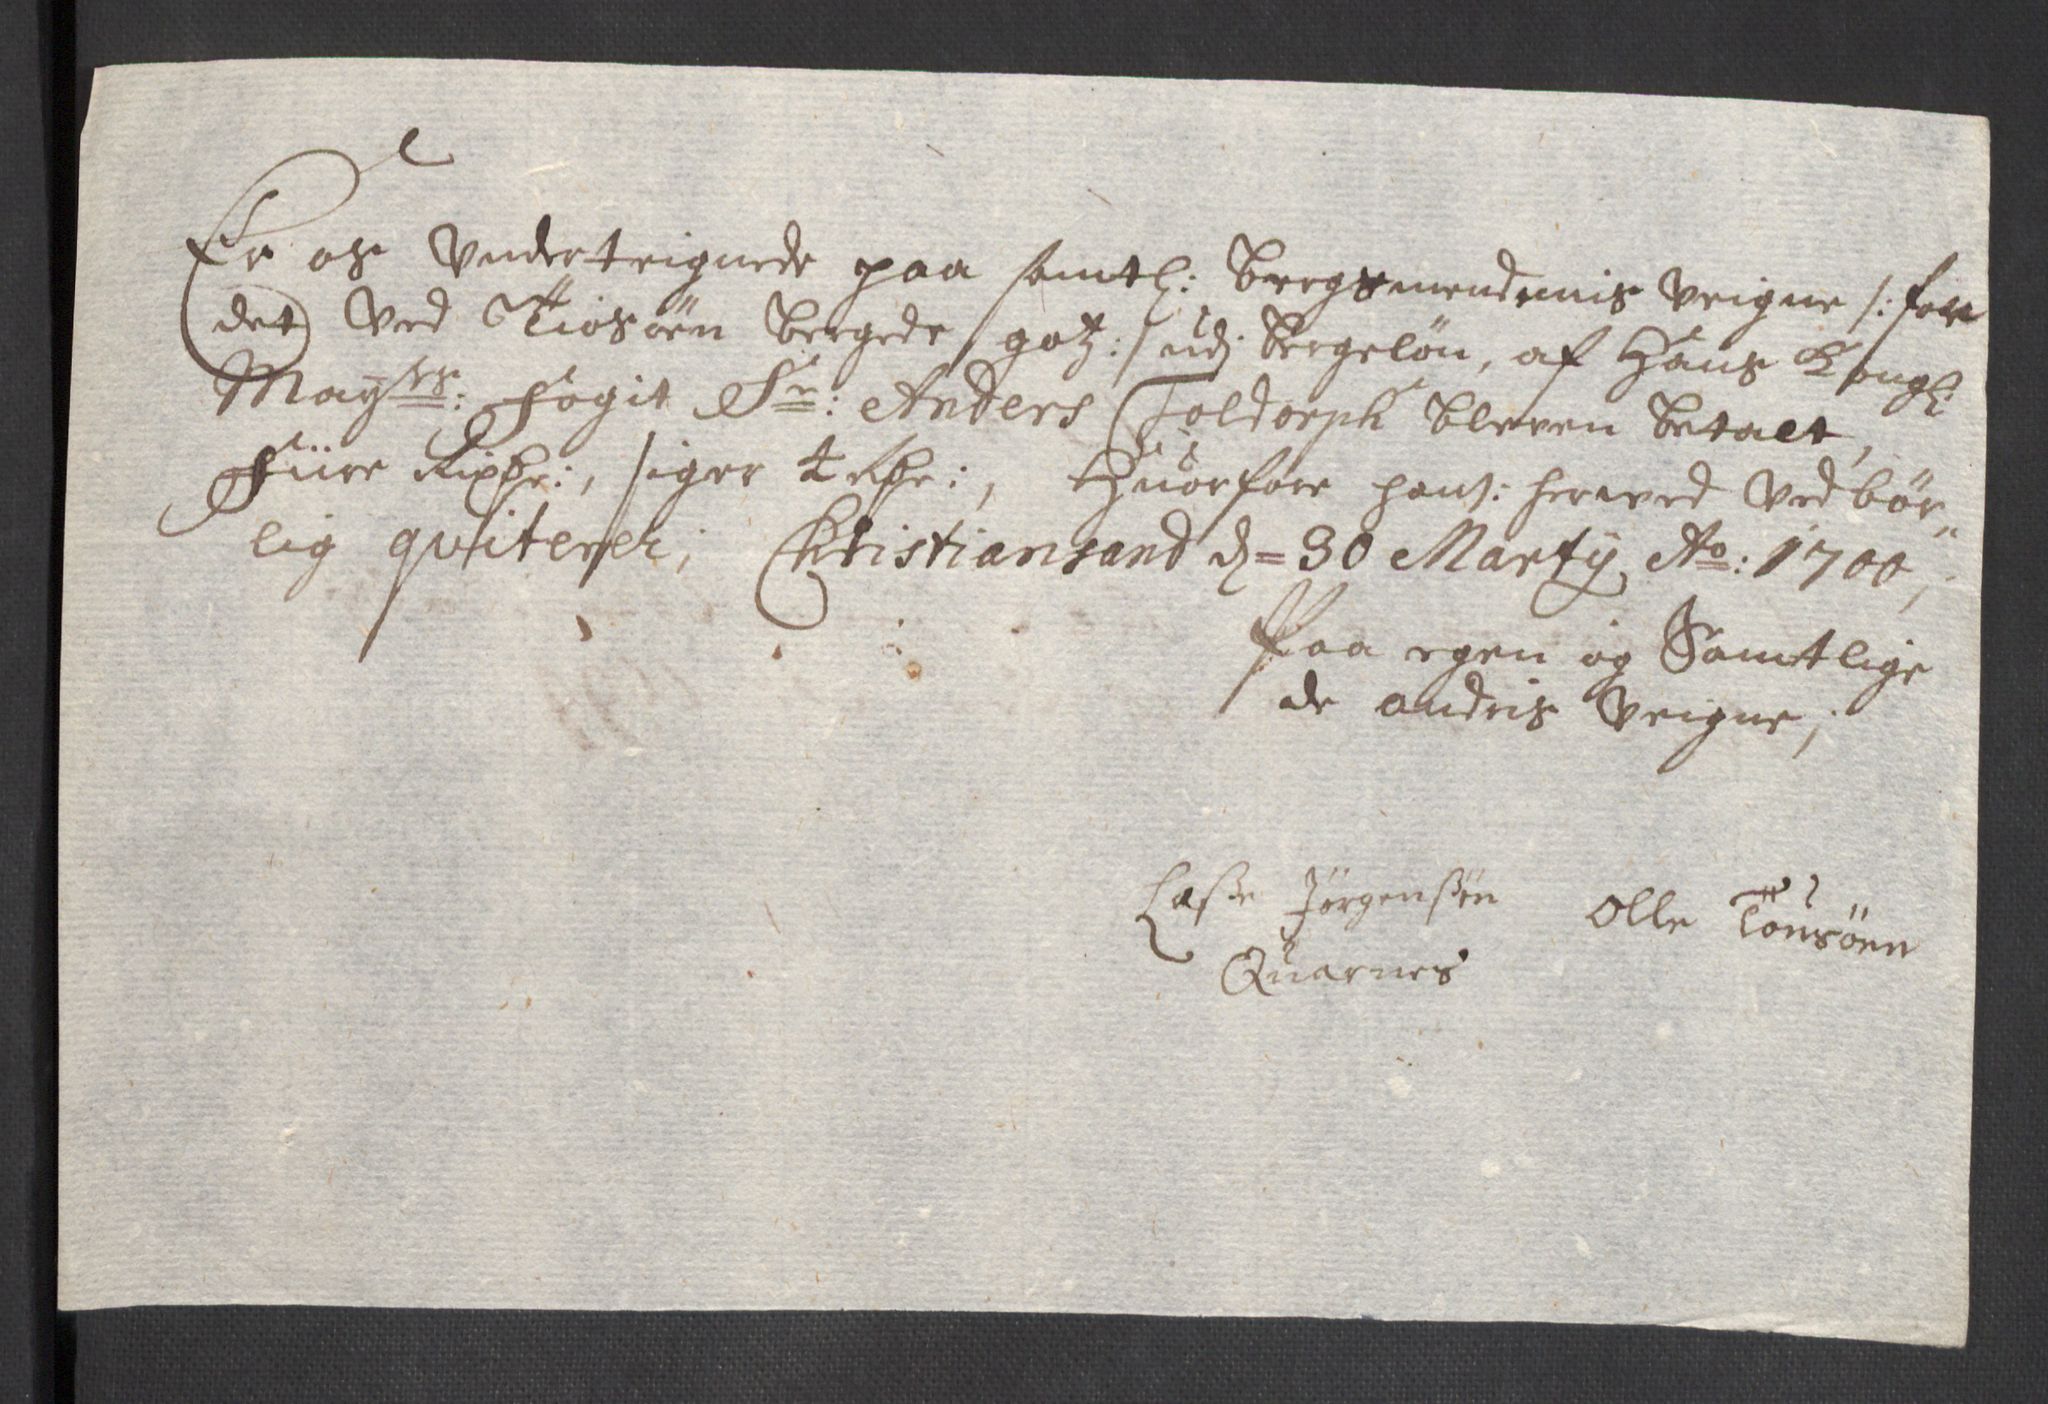 Er os Underteignede paa samtl: bergemendernis Veigne /: for
det Ved Tiosøen bergede gotz :/ udj bergeløn, af Hans Kongl:
Mayts: Fogit Sr: Anders Toldorph bleven betalt,
Fiire Rixdr:, siger 4 Rdr:, Huorfore hans: herved Vedbør-
lig qviterer; Christiansand d= 30 Marty Ao: 1700,
Paa egen og Samtlige
de andris Veigne;
Lasse Jørgensøn Olle Tønsøen
Quarnes